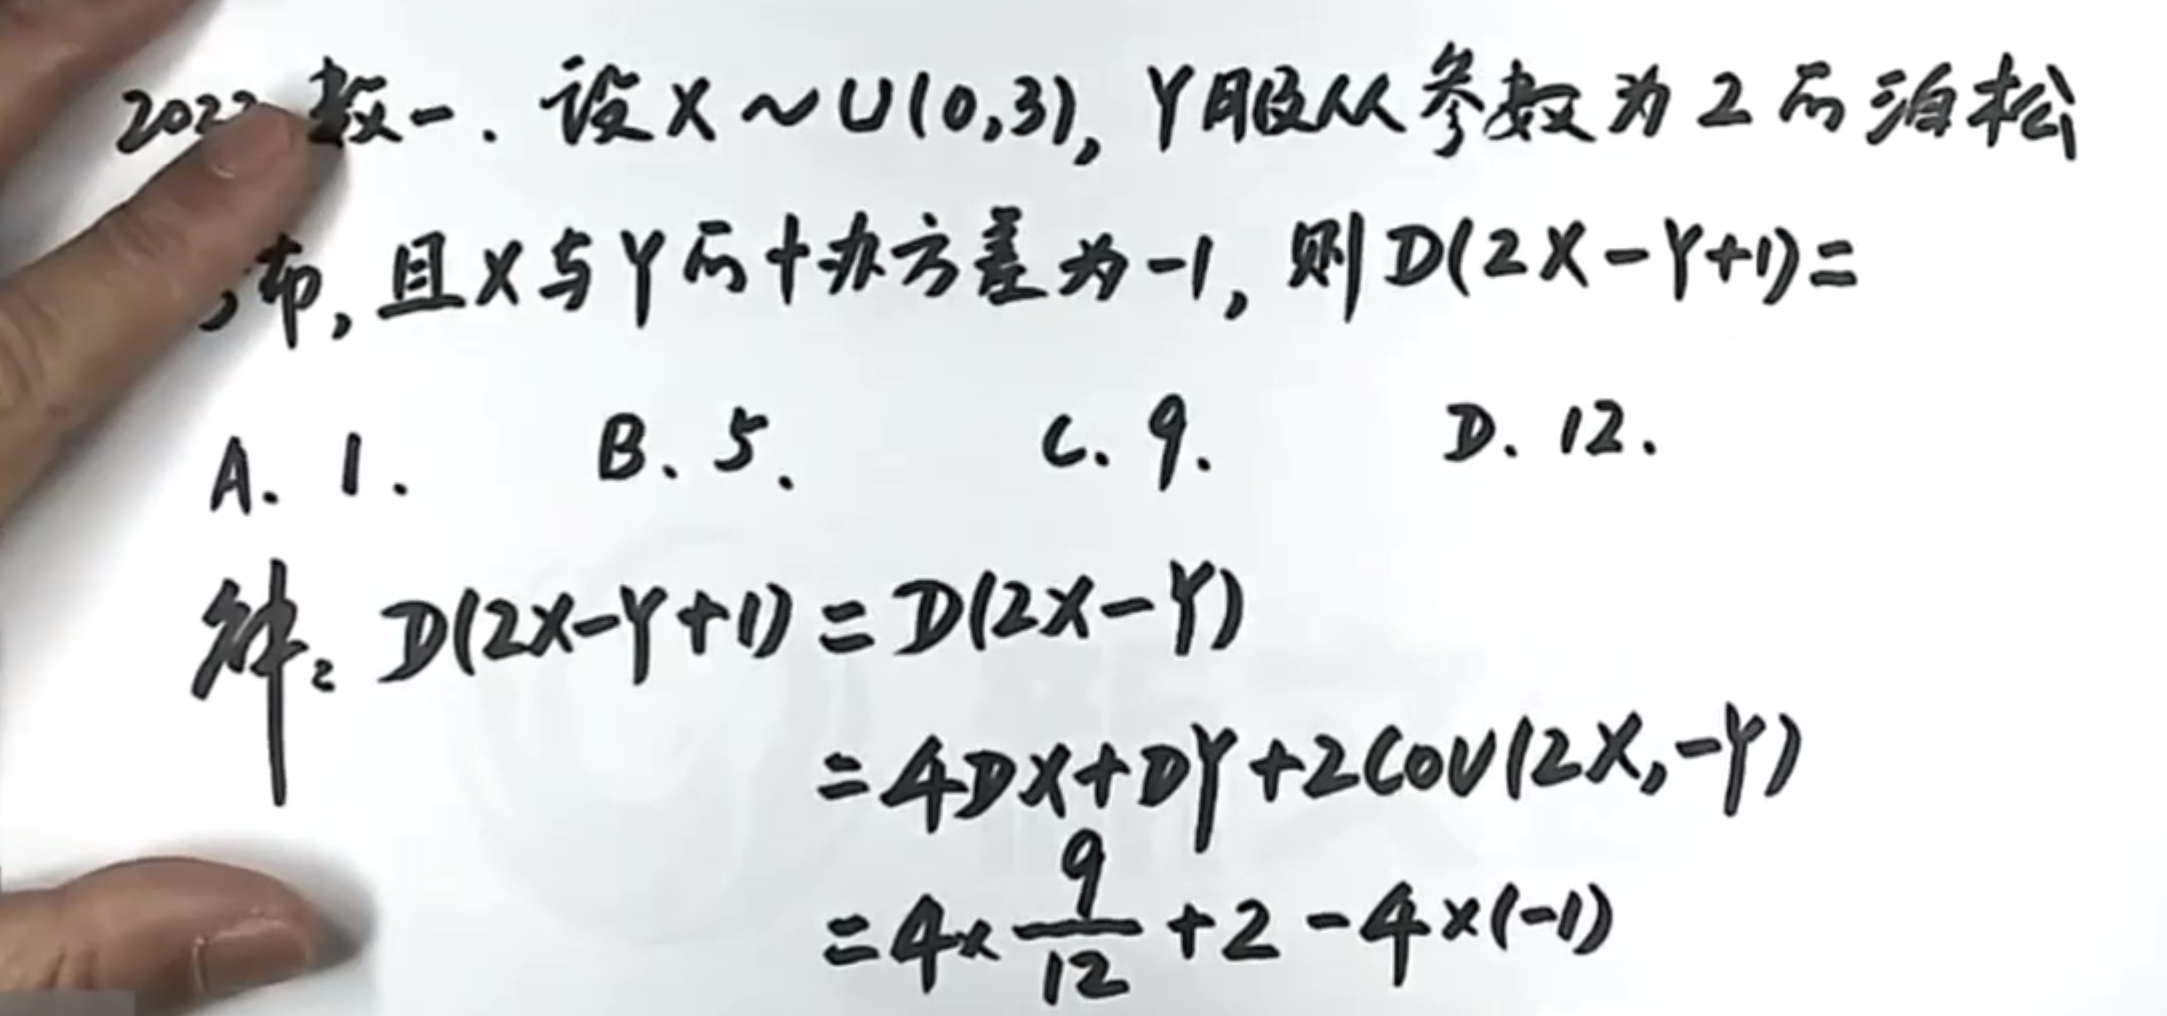 202 数一. 设X~U(0,3), Y服从参数为2的泊松
布, 且X与Y的协方差为-1, 则D(2X-Y+1)=
A. 1. B. 5. C. 9. D. 12.
解: D(2X-Y+1)=D(2X-Y)
=4DX+DY+2COV(2X,-Y)
=4×9/12+2-4×(-1)